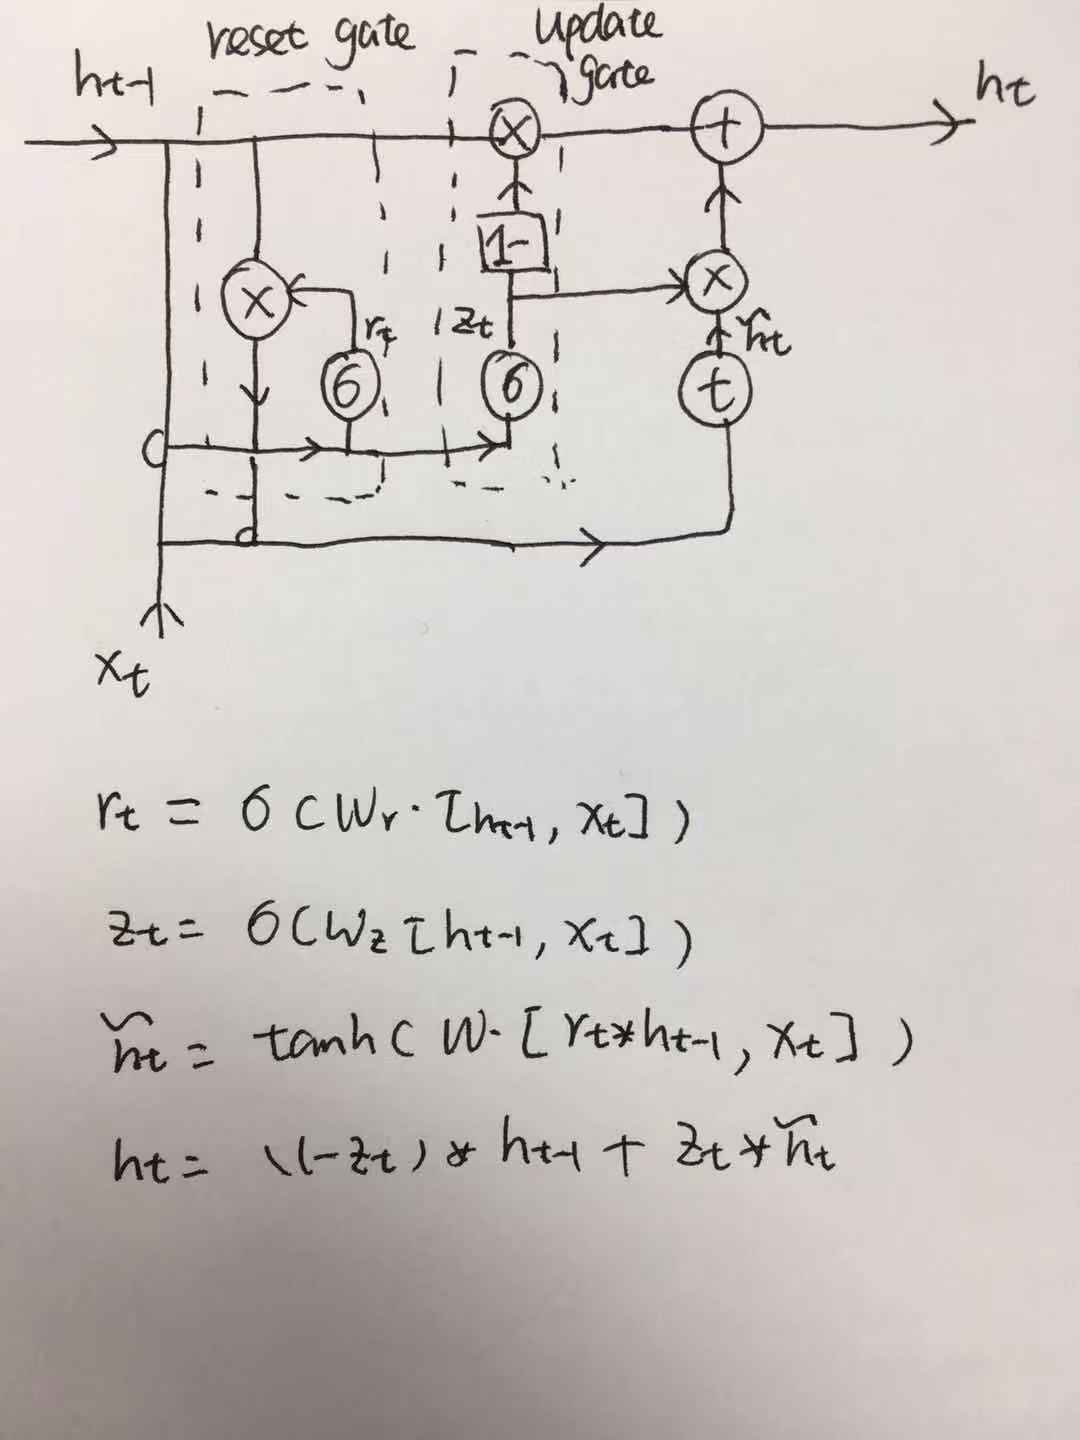 reset gate
update
gate
ht-1
ht
×
+
1-
×
×
rt
zt
h̃t
σ
σ
t
xt
rt = σ(Wr·[ht-1, xt])
zt = σ(Wz[ht-1, xt])
h̃t = tanh(W·[rt*ht-1, xt])
ht = (1-zt)*ht-1 + zt*h̃t